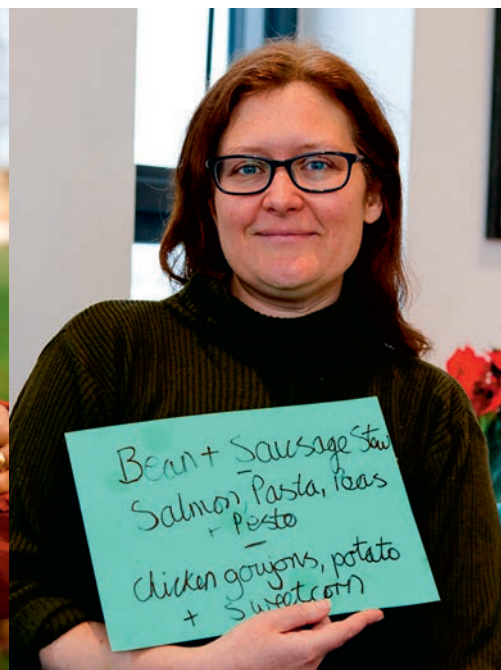 Bean + Sausage Stew
–
Salmon Pasta, Peas
+ Pesto
–
Chicken goujons, potato
+ Sweetcorn